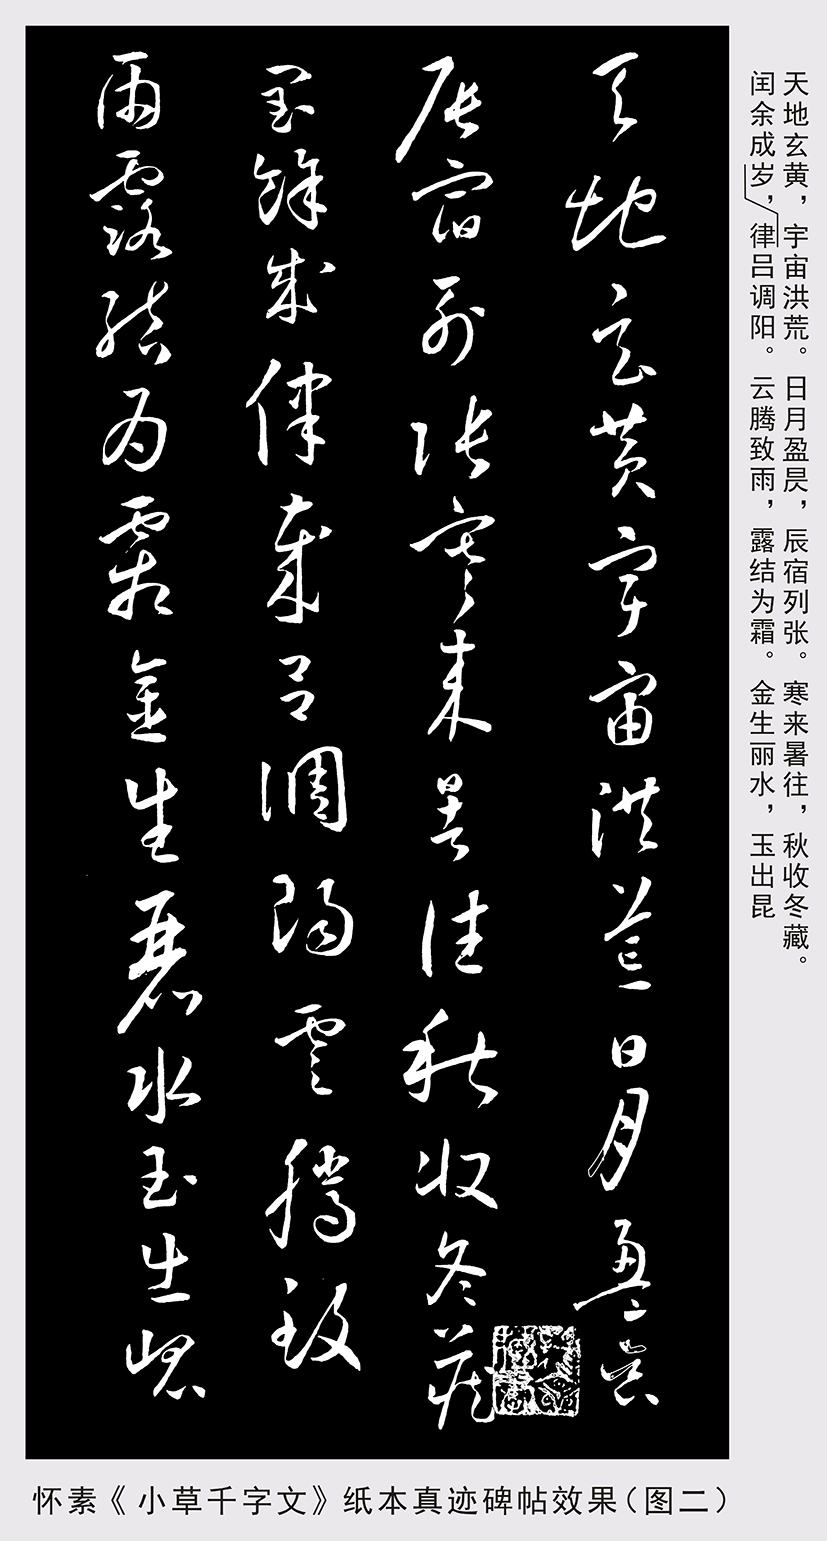 天地玄黄，宇宙洪荒。日月盈昃，辰宿列张。寒来暑往，秋收冬藏。
闰余成岁，律吕调阳。云腾致雨，露结为霜。金生丽水，玉出昆
天地玄黄宇宙洪荒日月盈昃
辰宿列張寒来暑往秋收冬藏
閏餘成律歲吕調陽雲騰致
雨露結為霜金生麗水玉出崐
怀素《小草千字文》纸本真迹碑帖效果（图二）